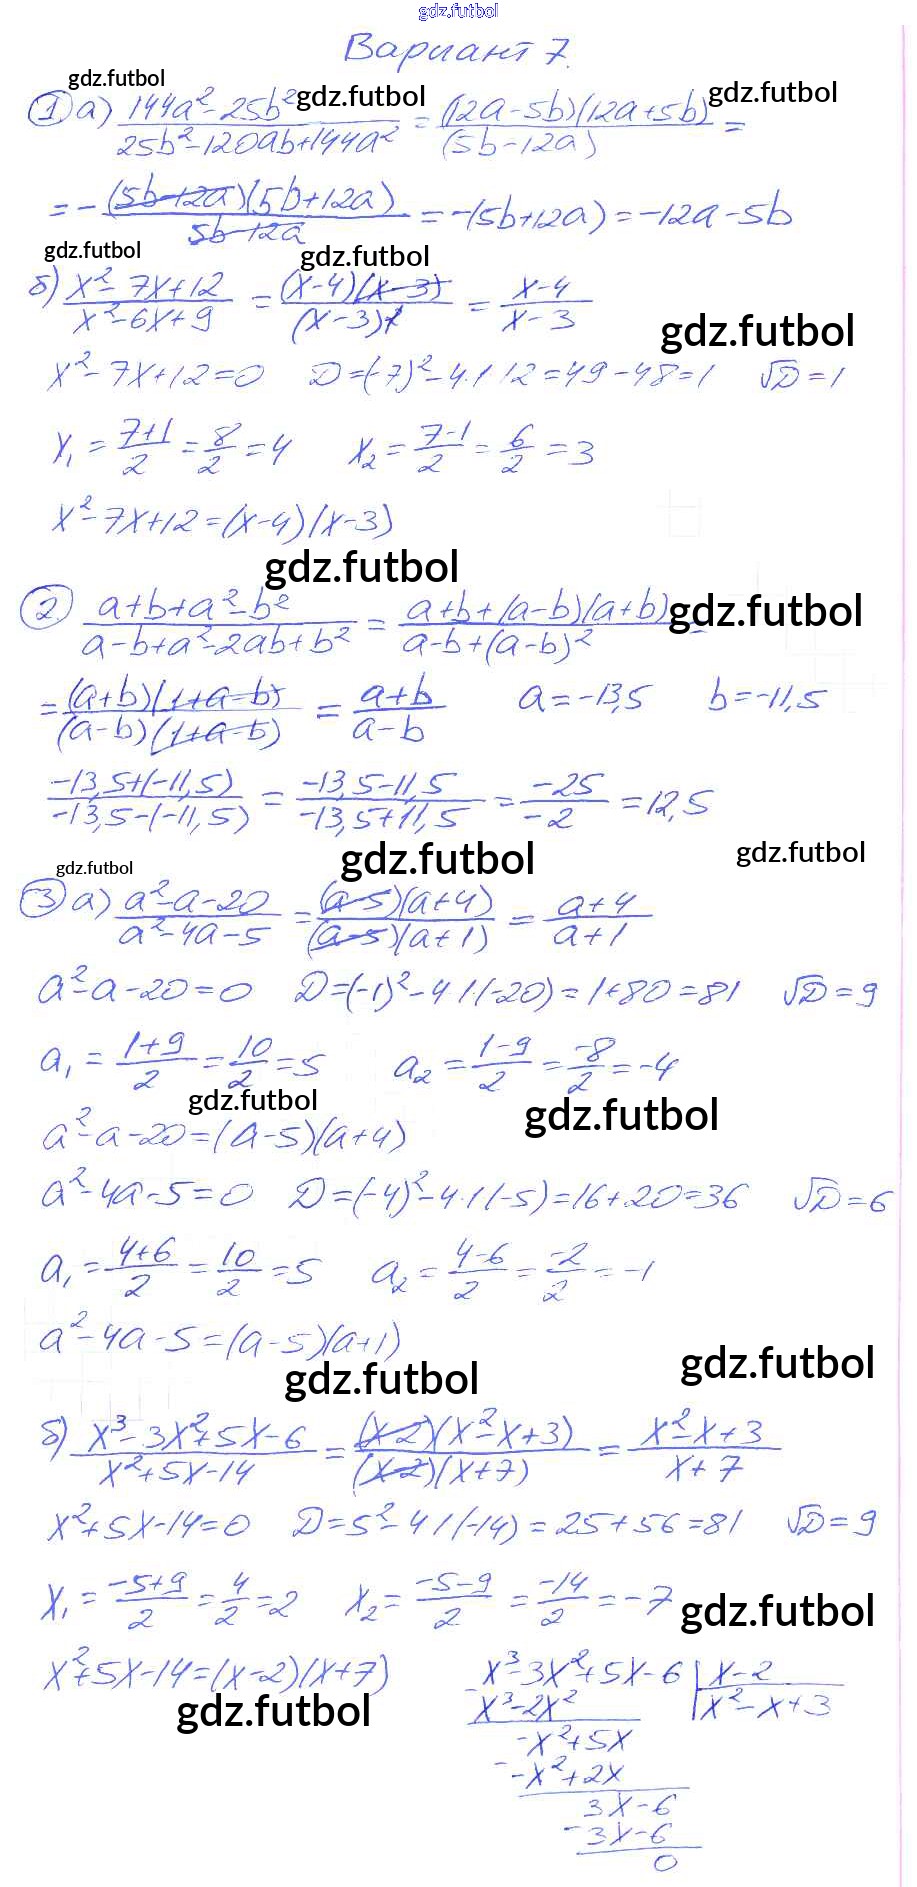 gdz.futbol
Вариант 7.
gdz.futbol
gdz.futbol
gdz.futbol
① а) (144a² - 25b²)/(25b² - 120ab + 144a²) = ((12a - 5b)(12a + 5b))/(5b - 12a) =
= -((5b - 12a)(5b + 12a))/(5b - 12a) = -(5b + 12a) = -12a - 5b
gdz.futbol
gdz.futbol
б) (x² - 7x + 12)/(x² - 6x + 9) = ((x - 4)(x - 3))/((x - 3)²) = (x - 4)/(x - 3)
gdz.futbol
x² - 7x + 12 = 0 D = (-7)² - 4·1·12 = 49 - 48 = 1 √D = 1
x₁ = (7+1)/2 = 8/2 = 4 x₂ = (7-1)/2 = 6/2 = 3
x² - 7x + 12 = (x - 4)(x - 3)
gdz.futbol
② (a + b + a² - b²)/(a - b + a² - 2ab + b²) = (a + b + (a - b)(a + b))/(a - b + (a - b)²) =
gdz.futbol
= ((a + b)(1 + a - b))/((a - b)(1 + a - b)) = (a + b)/(a - b) a = -13,5 b = -11,5
(-13,5 + (-11,5))/(-13,5 - (-11,5)) = (-13,5 - 11,5)/(-13,5 + 11,5) = (-25)/(-2) = 12,5
gdz.futbol
gdz.futbol
gdz.futbol
③ а) (a² - a - 20)/(a² - 4a - 5) = ((a - 5)(a + 4))/((a - 5)(a + 1)) = (a + 4)/(a + 1)
a² - a - 20 = 0 D = (-1)² - 4·1·(-20) = 1 + 80 = 81 √D = 9
a₁ = (1+9)/2 = 10/2 = 5 a₂ = (1-9)/2 = -8/2 = -4
gdz.futbol
gdz.futbol
a² - a - 20 = (a - 5)(a + 4)
a² - 4a - 5 = 0 D = (-4)² - 4·1·(-5) = 16 + 20 = 36 √D = 6
a₁ = (4+6)/2 = 10/2 = 5 a₂ = (4-6)/2 = -2/2 = -1
a² - 4a - 5 = (a - 5)(a + 1)
gdz.futbol
gdz.futbol
б) (x³ - 3x² + 5x - 6)/(x² + 5x - 14) = ((x - 2)(x² - x + 3))/((x - 2)(x + 7)) = (x² - x + 3)/(x + 7)
x² + 5x - 14 = 0 D = 5² - 4·1·(-14) = 25 + 56 = 81 √D = 9
x₁ = (-5+9)/2 = 4/2 = 2 x₂ = (-5-9)/2 = -14/2 = -7
gdz.futbol
x² + 5x - 14 = (x - 2)(x + 7)
gdz.futbol
x³ - 3x² + 5x - 6 | x - 2
x³ - 2x² | x² - x + 3
-x² + 5x
-x² + 2x
3x - 6
3x - 6
0